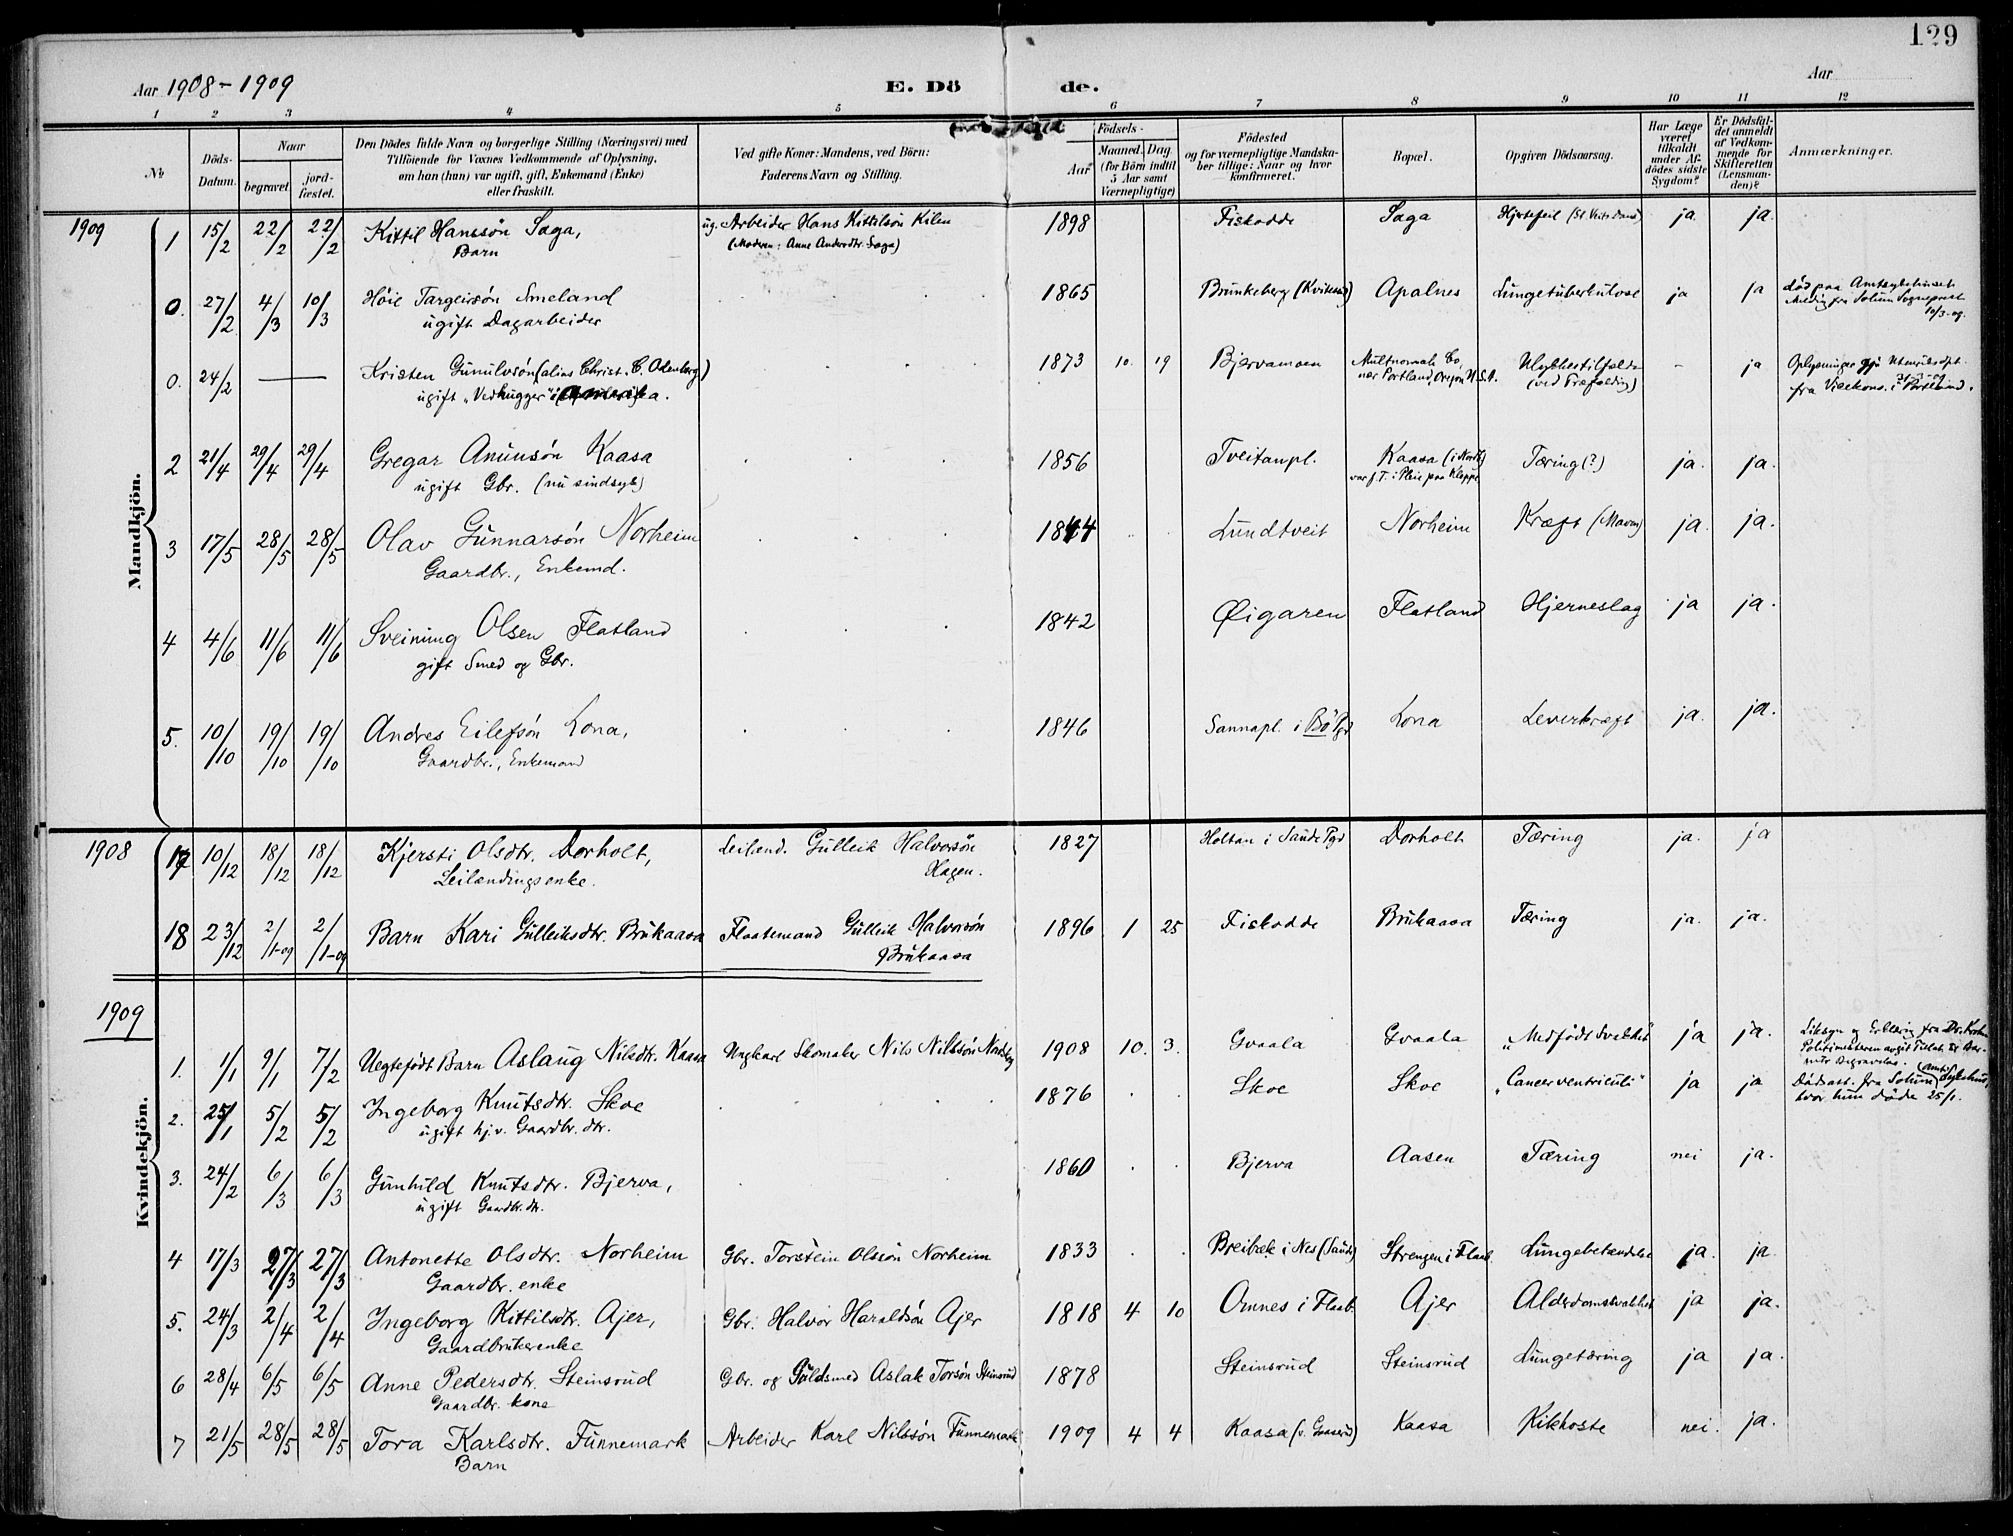 129
Aar 1908-1909 E. Dö de. Aar
1 2 3 4 5 6 7 8 9 10 11 12
No. Döds-Datum. Naar begravet. jord-fæstet. Den Dödes fulde Navn og borgerlige Stilling (Næringsvei) med Tilföiende for Voxnes Vedkommende af Oplysning, om han (hun) var ugift, gift, Enkemand (Enke) eller fraskilt. Ved gifte Koner: Mandens, ved Börn: Faderens Navn og Stilling. Födsels- Aar Maaned. Dag. (for Börn indtil 5 Aar samt Værnepligtige) Födested og for værnepligtige Mandska-ber tillige: Naar og hvor konfirmeret. Bopæl. Opgiven Dödsaarsag. Har Læge været tilkaldt under Af-dödes sidste Sygdom? Er Dödsfal-det anmeldt af Vedkom-mende for Skifteretten (Lensman-den)? Anmærkninger.
Mandkjön.
1909 1 15/2 22/2 22/2 Kittil Hanssön Saga, ug. Arbeider Hans Kittilsön Kilen 1898 Fiskodde Saga Hjertefeil (St. Veits Dans) ja ja.
Barn (Moderen: Anne Andersdtr. Saga)
0. 27/2 4/3 10/3 Höie Targeirsön Smeland 1865 Brunkeberg (Kviteseid) Apalnes Lungetuberkulose ja ja död paa Amtssykehuset
ugift Dagarbeider Medig fra Solum Sogneprest
10/3-09.
0. 24/2 — Kristen Gunulvsön (alias Christ. C. Odenberg) 1873 10. 19 Bjervamoen Multnomah Co. Ulykkestilfælde - ja Oplysninger gj. Utenriksdpt.
ugift "Vedhugger" i Amerika. nær Portland, Oregon U.S.A. (ved Træfælding) fra Vicekons. i Portland.
2 21/4 29/4 29/4 Gregar Anunsön Kaasa 1856 Tveitanpl. Kaasa (i Nordb) Tæring (?) ja. ja.
ugift Gbr. (nu sindsyk) var f.T. i Pleie paa Kleppe
3 17/5 28/5 28/5 Olav Gunnarsön Norheim 1844 Lundtveit Norheim Kræft (Maven) ja. ja.
Gaardbr., Enkemd.
4 4/6 11/6 11/6 Sveinung Olsen Flatland 1842 Øigaren Flatland Hjerneslag ja ja.
gift Smed og Gbr.
5. 10/10 19/10 19/10 Andres Eilefsön Lona, 1846 Sannapl. i Bö Pgd Lona Leverkræft ja. ja.
Gaardbr., Enkemand
1908 17 10/12 18/12 18/12 Kjersti Olsdtr. Dorholt, Leilænd. Gulleik Halvorsön 1827 Holtan i Saude Pgd Dorholt Tæring ja. ja
Leilændingsenke. Hagen.
18 23/12 2/1-09 2/1-09 Barn Kari Gulleiksdtr. Brukaasa Flaatemand Gulleik Halvorsön 1896 1 25 Fiskodde Brukaasa Tæring ja. ja.
Brukaasa
Kvindekjön.
1909
1. 1/1 9/1 7/2 Uegtefödt Barn Aslaug Nilsdtr. Kaasa Ungkarl Skomaker Nils Nilssön 1908 10. 3. Gvaala Gvaala "Medfödt Svakhet ja ja. Liksyn og Erklæring fra Dr.
Politimesteren avgit Tillat. til
2. 25/1 5/2 5/2 Ingeborg Knutsdtr. Skoe 1876 Skoe Skoe "Cancer ventriculi" ja ja Dödsatt. fra Solum (Amts) Sykehus,
ugift hjv. Gaardbr. dtr. hvor hun döde 25/1.
3. 24/2 6/3 6/3 Gunhild Knutsdtr. Bjerva, 1860 Bjerva Aasen Tæring nei ja.
ugift Gaardbr. dtr.
4 17/3 27/3 27/3 Antonette Olsdtr. Norheim Gbr. Torstein Olssön Norheim 1833 Breibæk i Nes (Saude) Strengen i Flaab. Lungebetændelse ja. ja.
Gaardbr. enke
5. 24/3 2/4 2/4 Ingeborg Kittilsdtr. Ajer, Gbr. Halvor Haraldsön Ajer 1818 4 10 Omnes i Flaab. Ajer Alderdomssvakhet ja ja.
Gaardbrukerenke
6 28/4 6/5 6/5 Anne Pedersdtr. Steinsrud Gbr. og Guldsmed Aslak Torsön Steinsrud 1878 Steinsrud Steinsrud Lungetæring ja ja.
Gaardbr. kone
7 21/5 28/5 28/5 Tora Karlsdtr. Funnemark Arbeider Karl Nilssön Funnemark 1909 4 4 Kaasa Kaasa Kikhoste nei. ja.
Barn